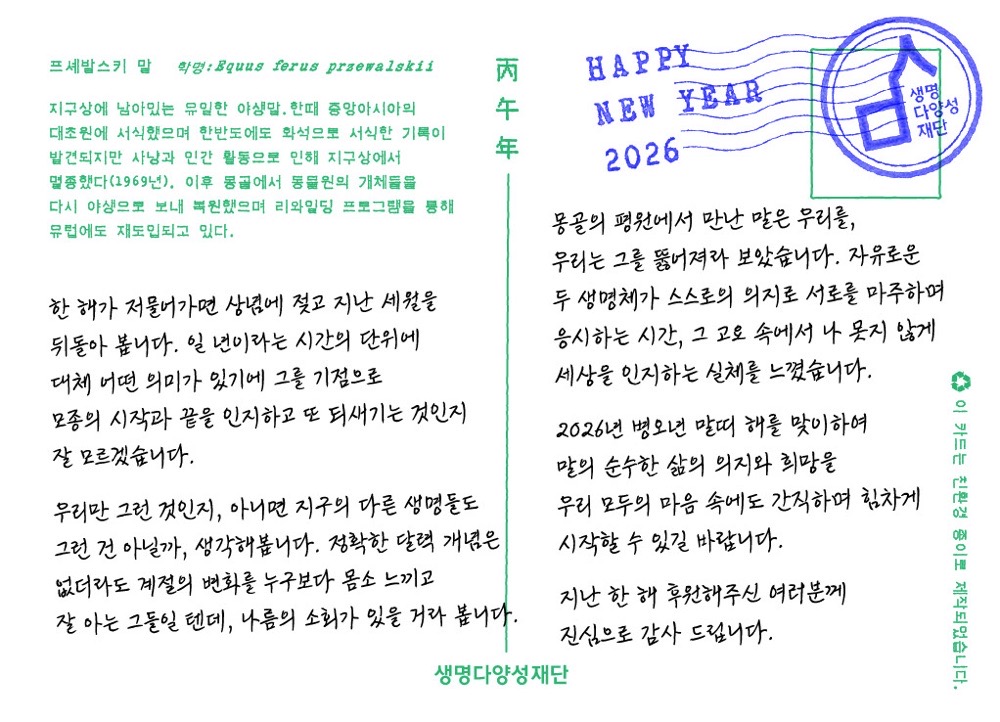 프셰발스키 말   학명:Equus ferus przewalskii
지구상에 남아있는 유일한 야생말.한때 중앙아시아의
대초원에 서식했으며 한반도에도 화석으로 서식한 기록이
발견되지만 사냥과 인간 활동으로 인해 지구상에서
멸종했다(1969년). 이후 몽골에서 동물원의 개체들을
다시 야생으로 보내 복원했으며 리와일딩 프로그램을 통해
유럽에도 재도입되고 있다.
한 해가 저물어가면 상념에 젖고 지난 세월을
뒤돌아 봅니다. 일 년이라는 시간의 단위에
대체 어떤 의미가 있기에 그를 기점으로
모종의 시작과 끝을 인지하고 또 되새기는 것인지
잘 모르겠습니다.
우리만 그런 것인지, 아니면 지구의 다른 생명들도
그런 건 아닐까, 생각해봅니다. 정확한 달력 개념은
없더라도 계절의 변화를 누구보다 몸소 느끼고
잘 아는 그들일 텐데, 나름의 소회가 있을 거라 봅니다.
丙
午
年
HAPPY
NEW YEAR
2026
생명
다양성
재단
몽골의 평원에서 만난 말은 우리를,
우리는 그를 뚫어져라 보았습니다. 자유로운
두 생명체가 스스로의 의지로 서로를 마주하며
응시하는 시간, 그 고요 속에서 나 못지 않게
세상을 인지하는 실체를 느꼈습니다.
2026년 병오년 말띠 해를 맞이하여
말의 순수한 삶의 의지와 희망을
우리 모두의 마음 속에도 간직하며 힘차게
시작할 수 있길 바랍니다.
지난 한 해 후원해주신 여러분께
진심으로 감사 드립니다.
생명다양성재단
이 카드는 친환경 종이로 제작되었습니다.